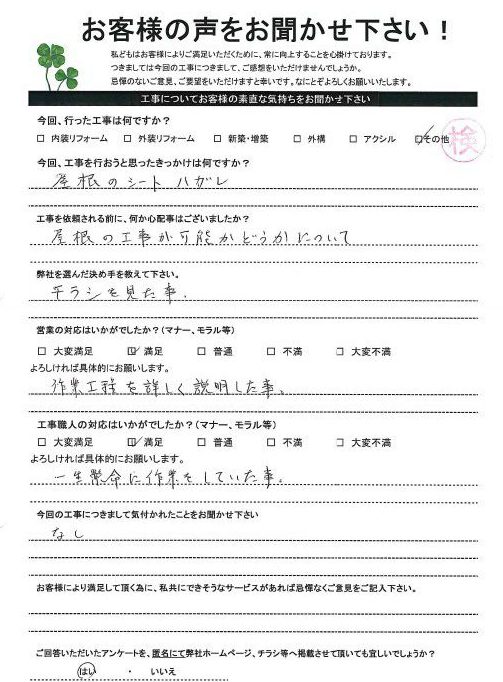 お客様の声をお聞かせ下さい！
私どもはお客様によりご満足いただくために、常に向上することを心掛けております。
つきましては今回の工事につきまして、ご感想をいただけませんでしょうか。
忌憚のないご意見、ご要望をいただけますと幸いです。なにとぞよろしくお願いいたします。
工事についてお客様の素直な気持ちをお聞かせ下さい
今回、行った工事は何ですか？
□ 内装リフォーム □ 外装リフォーム □ 新築・増築 □ 外構 □ アクシル ☑その他
検
今回、工事を行おうと思ったきっかけは何ですか？
屋根のシートハガレ
工事を依頼される前に、何か心配事はございましたか？
屋根の工事が可能かどうかについて
弊社を選んだ決め手を教えて下さい。
チラシを見た事。
営業の対応はいかがでしたか？（マナー、モラル等）
□ 大変満足 ☑ 満足 □ 普通 □ 不満 □ 大変不満
よろしければ具体的にお願いします。
作業工程を詳しく説明した事。
工事職人の対応はいかがでしたか？（マナー、モラル等）
□ 大変満足 ☑ 満足 □ 普通 □ 不満 □ 大変不満
よろしければ具体的にお願いします。
一生懸命に作業をしていた事。
今回の工事につきまして気付かれたことをお聞かせ下さい
なし
お客様により満足して頂く為に、私共にできそうなサービスがあれば忌憚なくご意見をご記入下さい。
ご回答いただいたアンケートを、匿名にて弊社ホームページ、チラシ等へ掲載させて頂いても宜しいでしょうか？
はい ・ いいえ